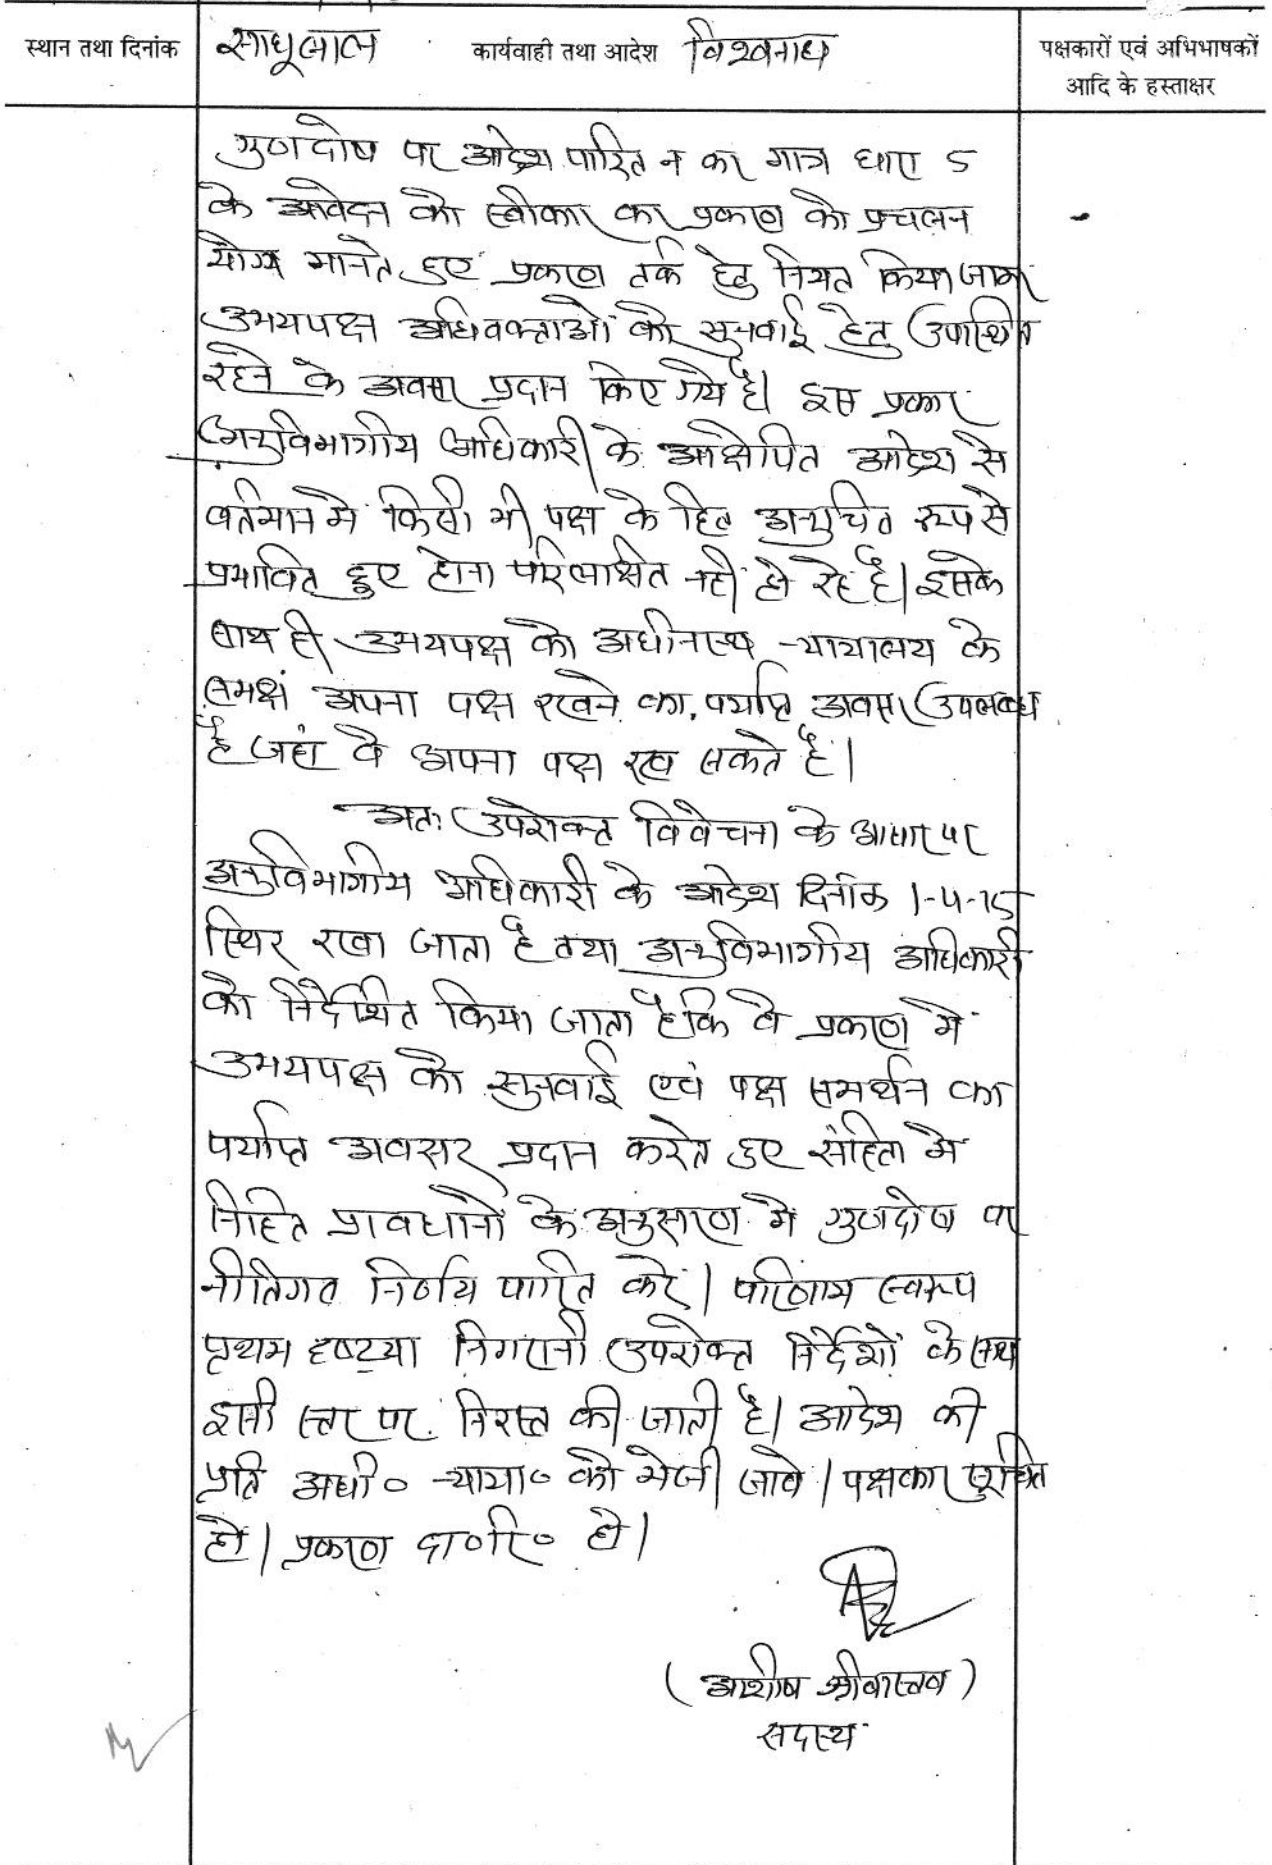 स्थान तथा दिनांक
साधूलाल कार्यवाही तथा आदेश विश्वनाथ
पक्षकारों एवं अभिभाषकों
आदि के हस्ताक्षर
गुणदोष पर आदेश पारित न कर मात्र धारा 5
के आवेदन को स्वीकार कर प्रकरण को प्रचलन
योग्य मानते हुए प्रकरण तर्क हेतु नियत किया जाकर
उभयपक्ष अधिवक्ताओं को सुनवाई हेतु उपस्थित
रहने के अवसर प्रदान किए गये है। इस प्रकार
अनुविभागीय अधिकारी के आक्षेपित आदेश से
वर्तमान मे किसी भी पक्ष के हित अनुचित रूप से
प्रभावित हुए होना परिलक्षित नहीं हो रहे है। इसके
साथ ही उभयपक्ष को अधीनस्थ न्यायालय के
समक्ष अपना पक्ष रखने का पर्याप्त अवसर उपलब्ध
है जहां वे अपना पक्ष रख सकते है।
अतः उपरोक्त विवेचना के आधार पर
अनुविभागीय अधिकारी के आदेश दिनांक 1-4-15
स्थिर रखा जाता है तथा अनुविभागीय अधिकारी
को निर्देशित किया जाता है कि वे प्रकरण में
उभयपक्ष को सुनवाई एवं पक्ष समर्थन का
पर्याप्त अवसर प्रदान करते हुए संहिता मे
निहित प्रावधानों के अनुसरण मे गुणदोष पर
नीतिगत निर्णय पारित करें। परिणाम स्वरूप
प्रथम दृष्टया निगरानी उपरोक्त निर्देशों के साथ
इसी स्तर पर निरस्त की जाती है। आदेश की
प्रति अधी० न्याया० को भेजी जावे। पक्षकार सूचित
हो। प्रकरण दा०रि० हो।
(आशीष श्रीवास्तव)
सदस्य